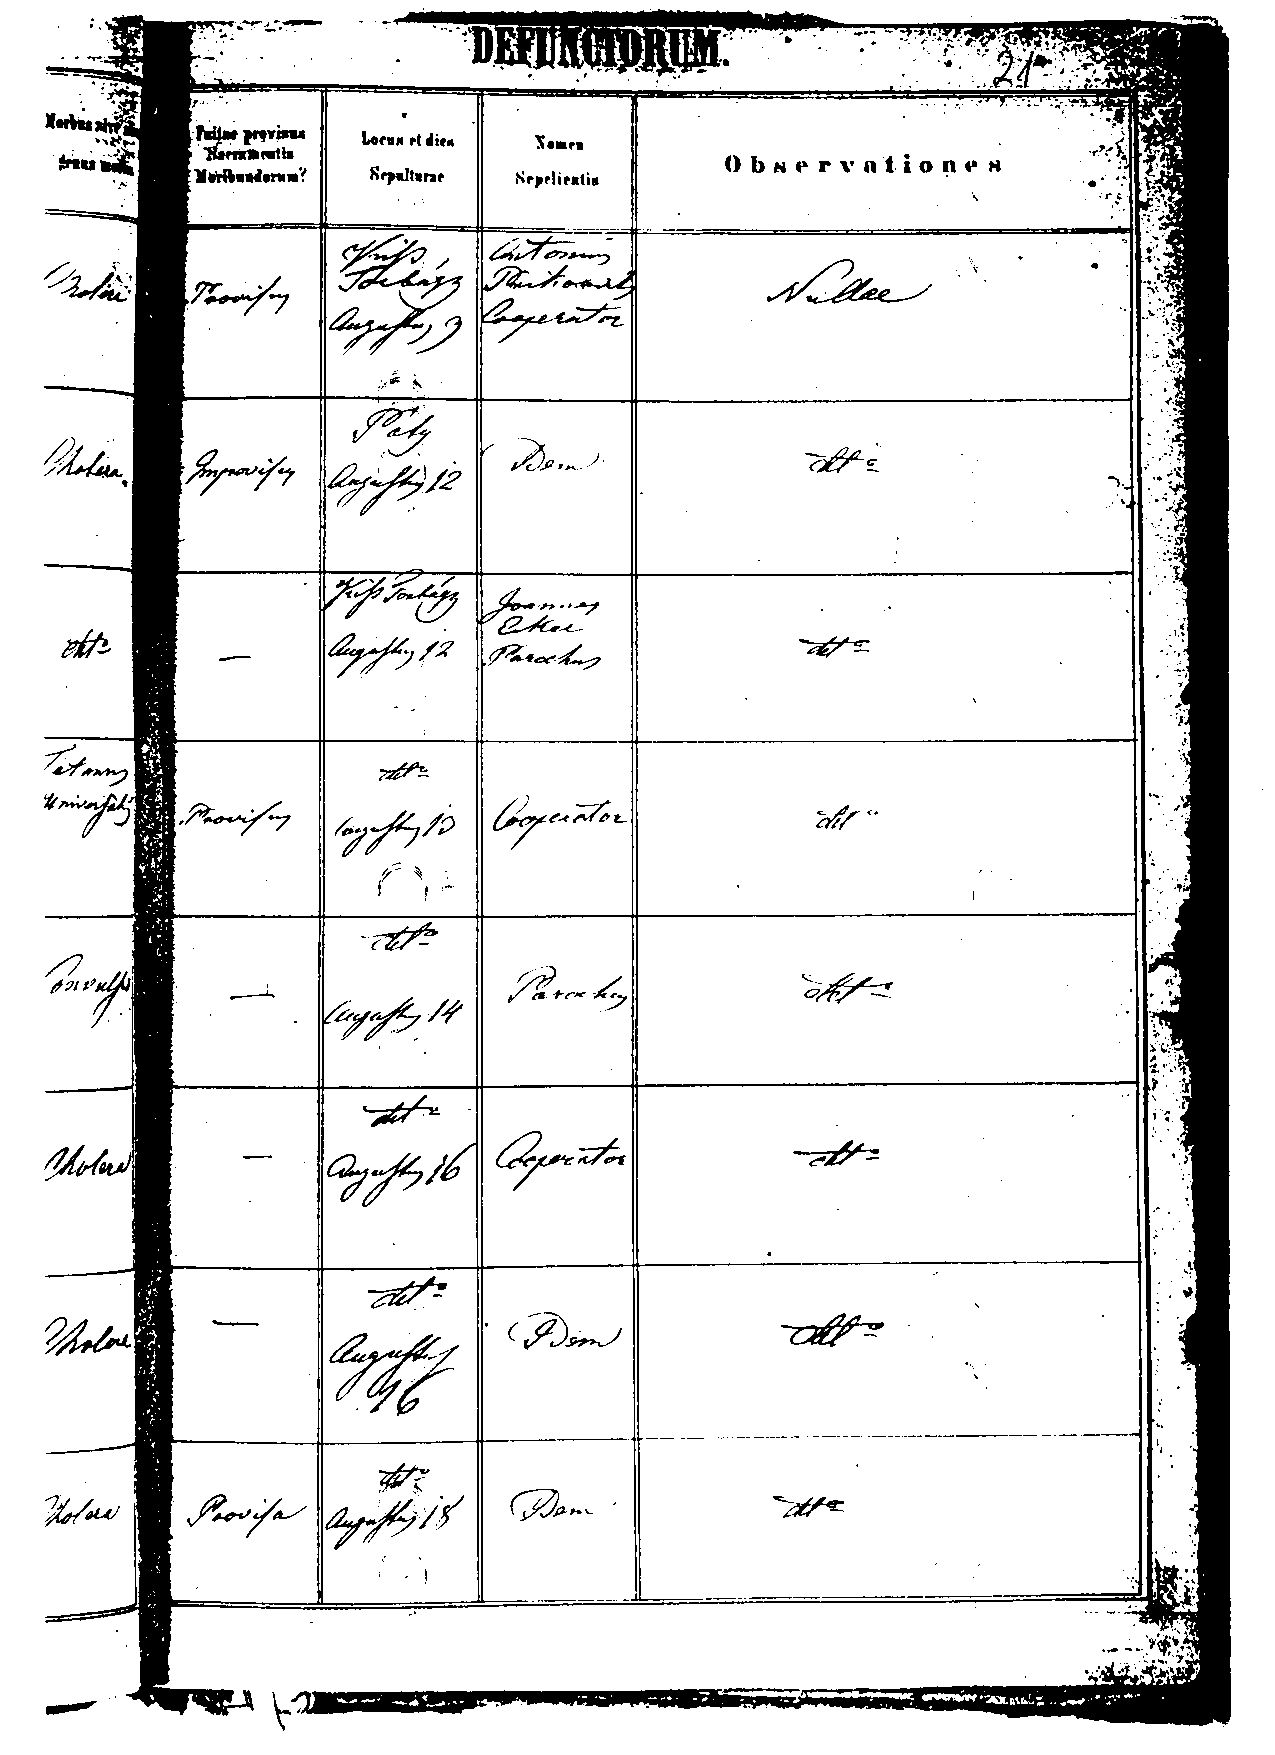 DEFUNCTORUM.
21
Morbus sive
genus mortis
Fuitne provisus
Sacramentis
Moribundorum?
Locus et dies
Sepulturae
Nomen
Sepelientis
Observationes
Cholera
Provisus
Kiss
Torbágy
Augustus 9
Antonius
Cooperator
Nullae
Cholera
Improvisus
Páty
Augustus 12
Idem
dtto
dtto
—
Kiss Torbágy
Augustus 12
Joannes
Parochus
dtto
Tetanus
Universalis
Provisus
dtto
Augustus 13
Cooperator
dtto
Convuls
—
dtto
Augustus 14
Parochus
dtto
Cholera
—
dtto
Augustus 16
Cooperator
dtto
Cholera
—
dtto
Augustus
16
Idem
dtto
Cholera
Provisa
dtto
Augustus 18
Idem
dtto